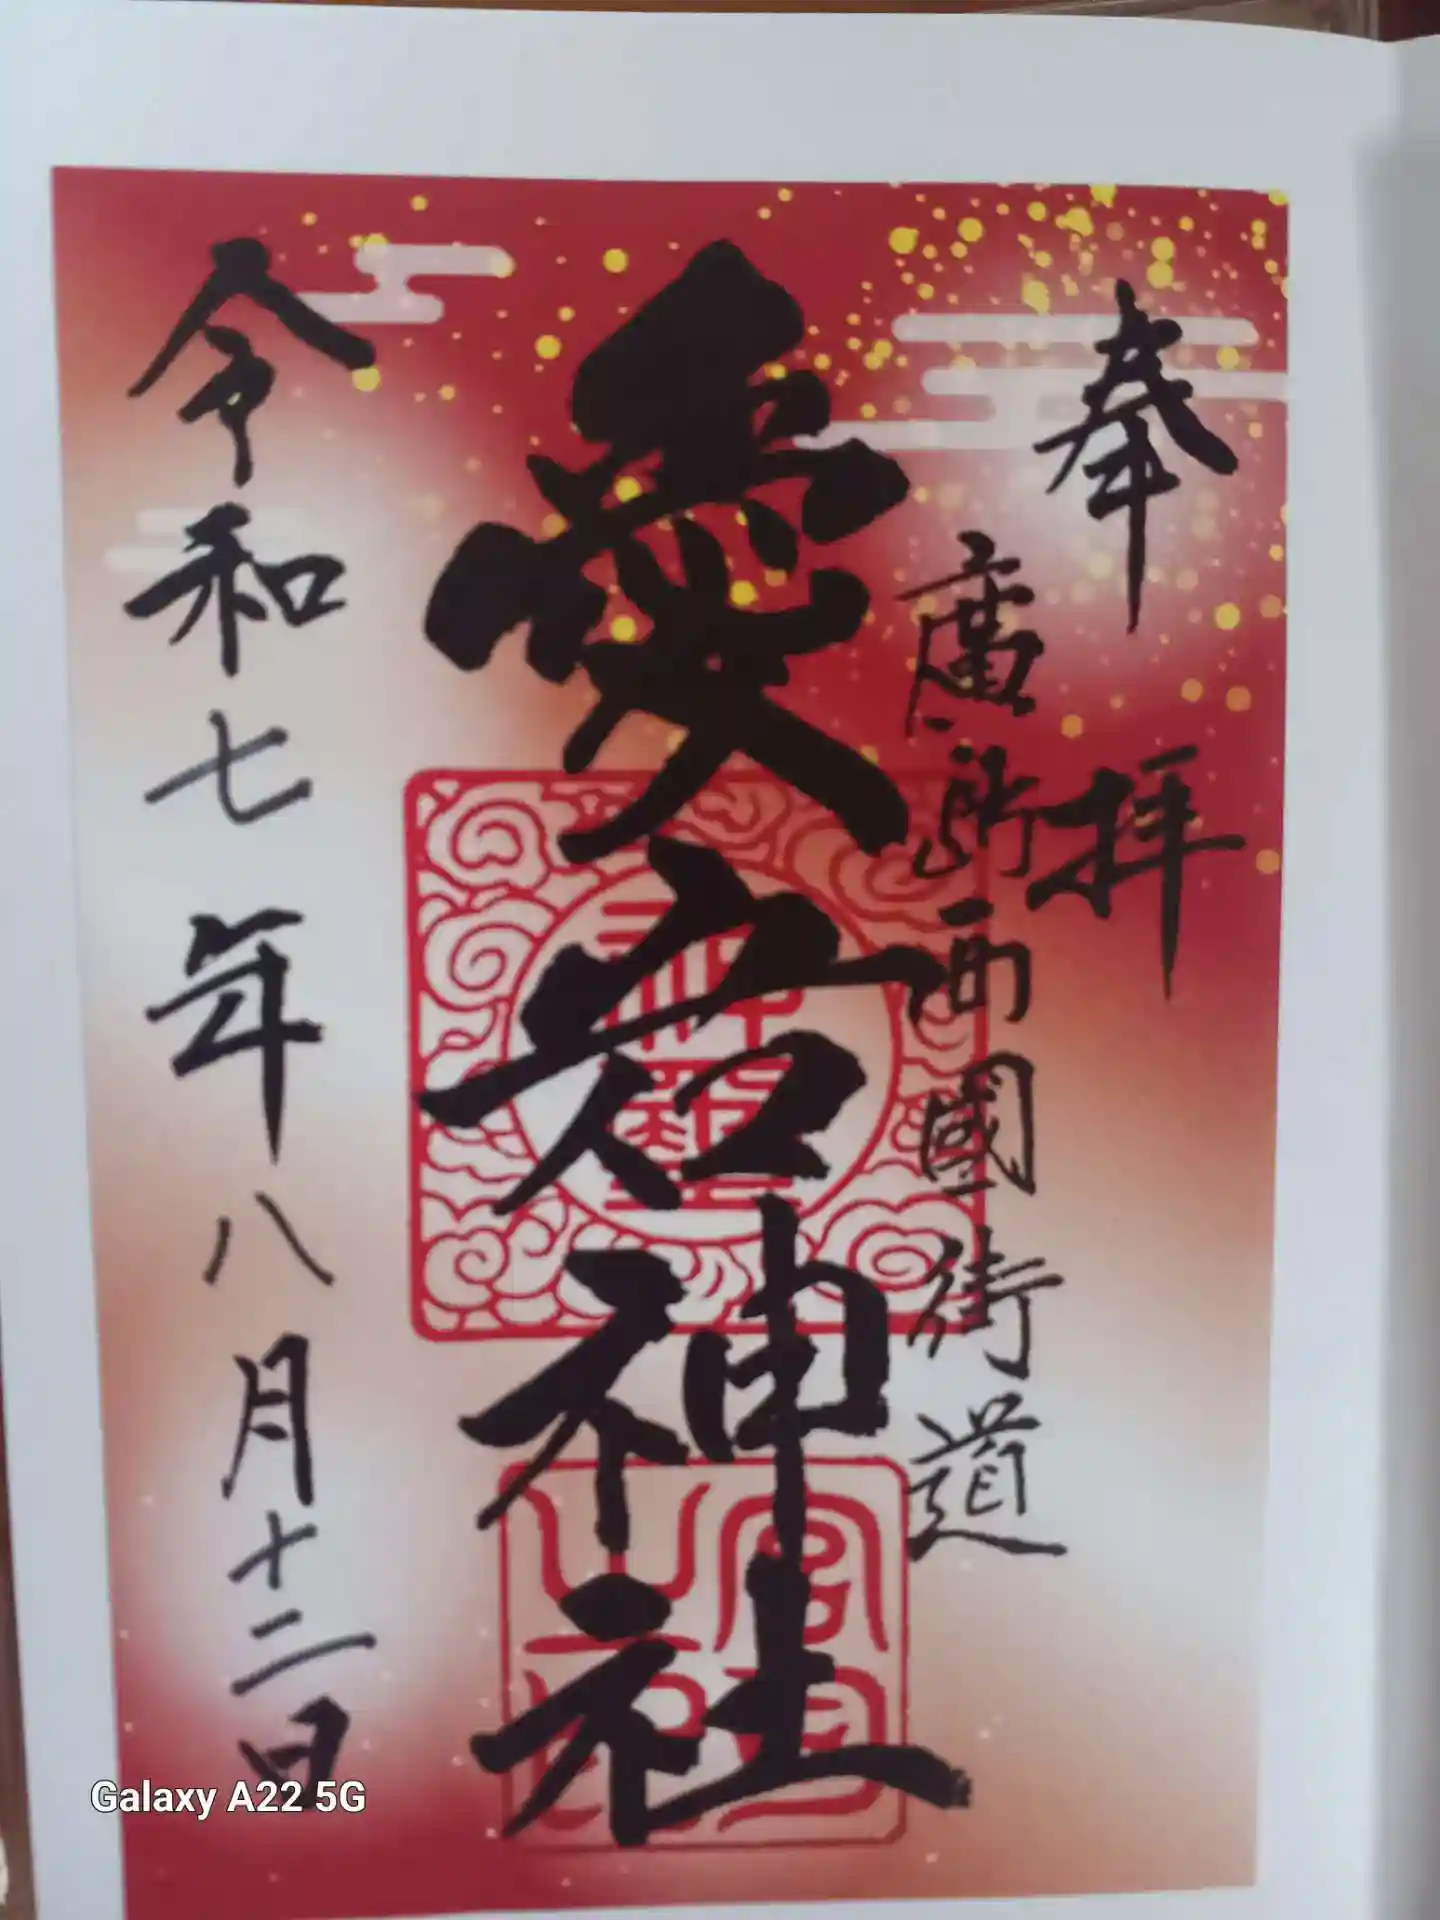 奉拝
廣 西國街道
愛宕神社
神璽
宮司之印
令和七年八月十二日
Galaxy A22 5G